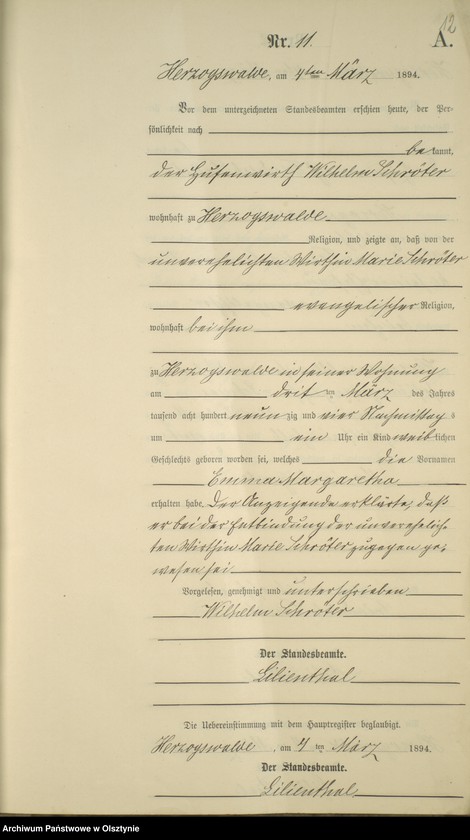 12
Nr. 11. A.
Herzogswalde, am 4ten März 1894.
Vor dem unterzeichneten Standesbeamten erschien heute, der Per-
sönlichkeit nach
bekannt,
der Hufenwirth Wilhelm Schröter
wohnhaft zu Herzogswalde
Religion, und zeigte an, daß von der
unverehelichten Wirthin Marie Schröter
evangelischer Religion,
wohnhaft bei ihm
zu Herzogswalde in seiner Wohnung
am dritten März des Jahres
tausend acht hundert neunzig und vier Nachmittags
um ein Uhr ein Kind weiblichen
Geschlechts geboren worden sei, welches die Vornamen
Emma Margaretha
erhalten habe. Der Anzeigende erklärte, daß
er bei der Entbindung der unverehelich-
ten Wirthin Marie Schröter zugegen ge-
wesen sei
Vorgelesen, genehmigt und unterschrieben
Wilhelm Schröter
Der Standesbeamte.
Lilienthal
Die Uebereinstimmung mit dem Hauptregister beglaubigt.
Herzogswalde, am 4ten März 1894.
Der Standesbeamte.
Lilienthal
Archiwum Państwowe w Olsztynie